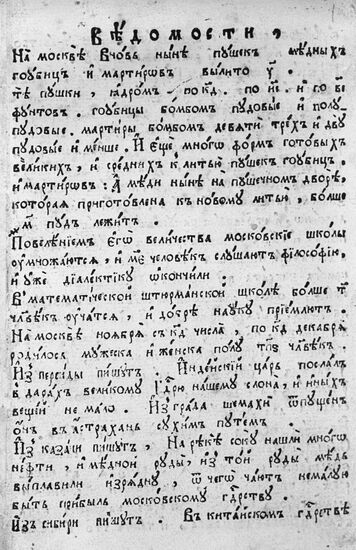 Вѣдомости,
На москвѣ вновь нынѣ пушекъ мѣдныхъ
гоубицъ и мартировъ вылито у҃.
тѣ пушки, ядромъ по кд҃. по и҃і. и по в҃і
фунтовъ. гоубицы бомбомъ пудовые и полу
пудовые. мартиры бомбомъ девяти трехъ и дву
пудовые и менше. И еще много формъ готовыхъ
великихъ, и среднихъ к литью пушекъ гоубицъ.
и мартировъ: А мѣди нынѣ на пушечномъ дворѣ,
которая приготовлена к новому литью, болше
м҃ пудъ лежитъ.
Повелѣніемъ Егѡ величества московскіе школы
оумножаются, и м҃е человѣкъ слушаютъ философію,
и уже діалектіку ѡкончили.
В математіческой штюрманской школѣ болше т҃
члвѣкъ оучатся, и добрѣ науку пріемлютъ.
На москвѣ ноября съ кд҃ числа, по кд҃ декабря
родилось мужска и женска полу тп҃ѕ члвѣкъ.
Из персіды пишутъ. Индѣискіи царь послалъ
в дарахъ великому Гдрю нашему слона, и иныхъ
вещей не мало. Из града шемахи ѿпущенъ
онъ в астрахань сухимъ путемъ.
Из казани пишутъ, На рѣкѣ соку нашли много
нефти, и мѣдной руды, из той руды мѣдь
выплавили изрядну, ѿ чегѡ чаютъ немалую
быть прибыль московскому гдрству.
Из сибири пишутъ. В китайскомъ гдрствѣ